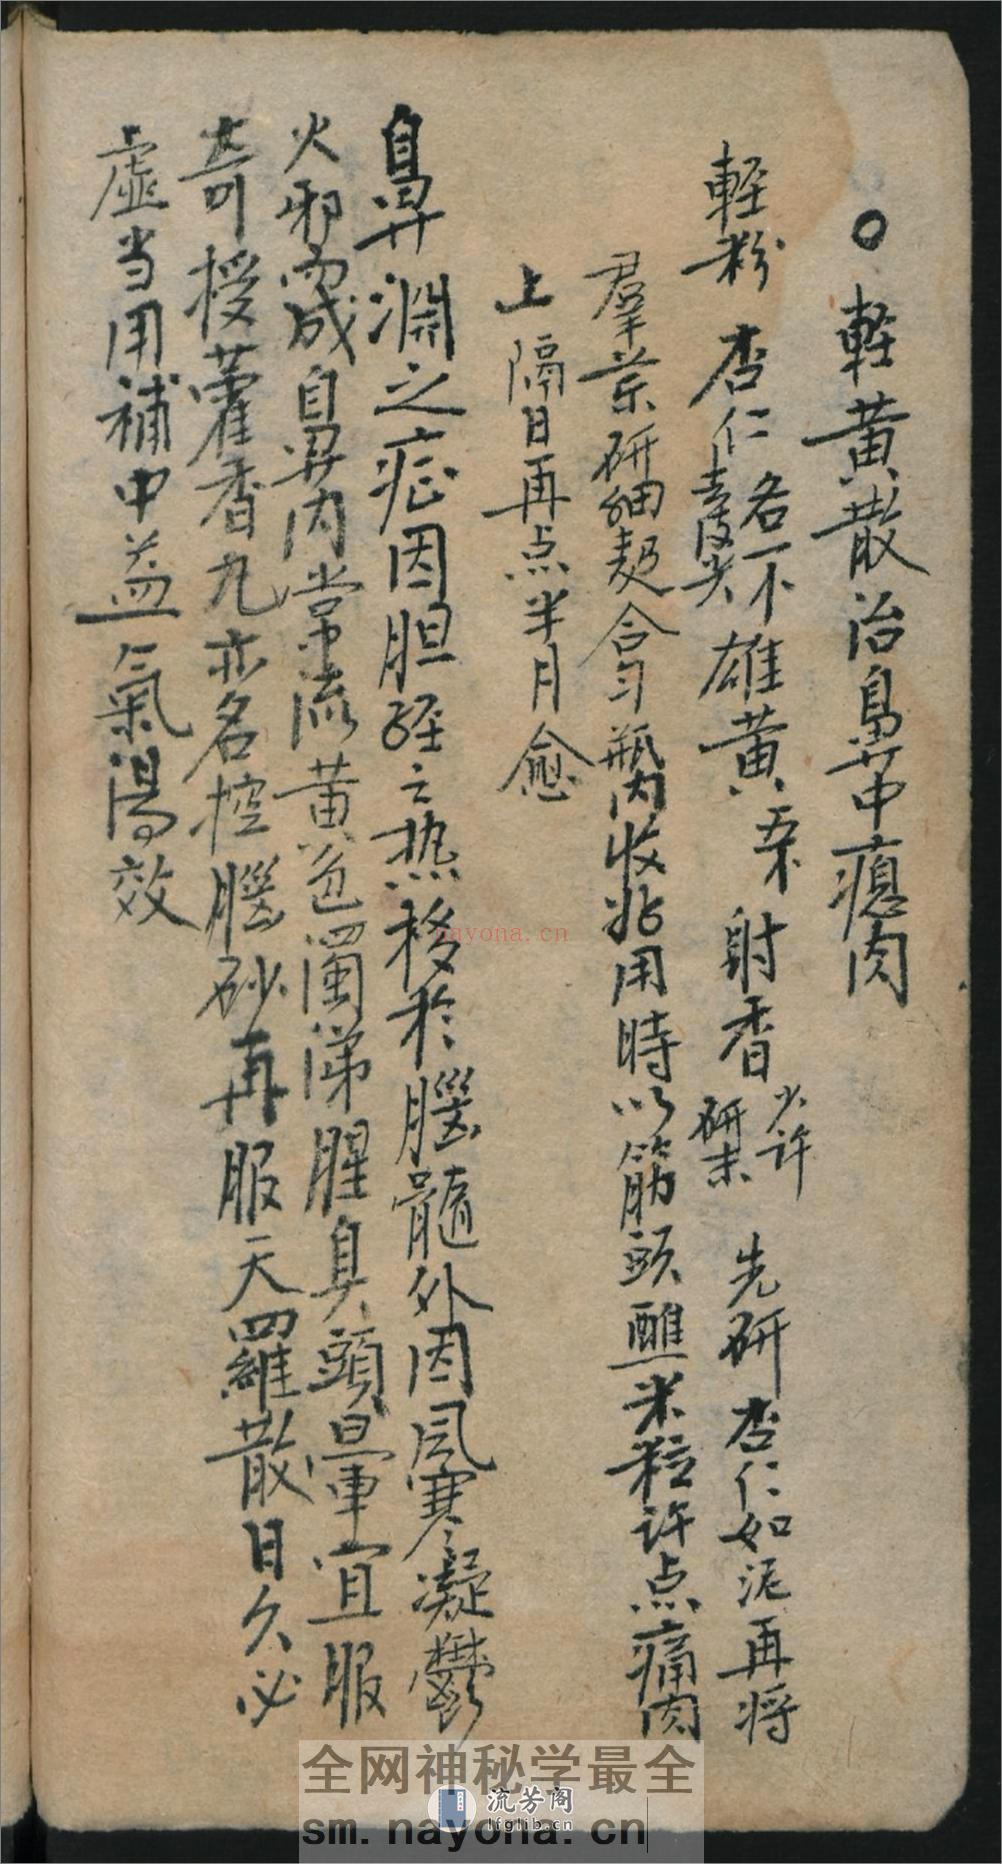 ○ 輕黃散治鼻中瘜肉
輕粉 杏仁 各一不 去皮尖 雄黃 射香 少许 研末 先研杏仁如泥再将
羣葉研細 合匀瓶内收 用時以筋頭醮米粒许点痛肉
上隔日再点半月愈
鼻渊之症因胆经之热移於腦髓外因風寒凝鬱
火邪而成鼻内常流黄色濁涕腥臭頭暈宜服
奇授藿香丸亦名控腦砂再服天羅散日久必
虛当用補中益氣湯效
nayona.cn
全网神秘学最全
流芳阁
lfglib.cn
sm.nayona.cn